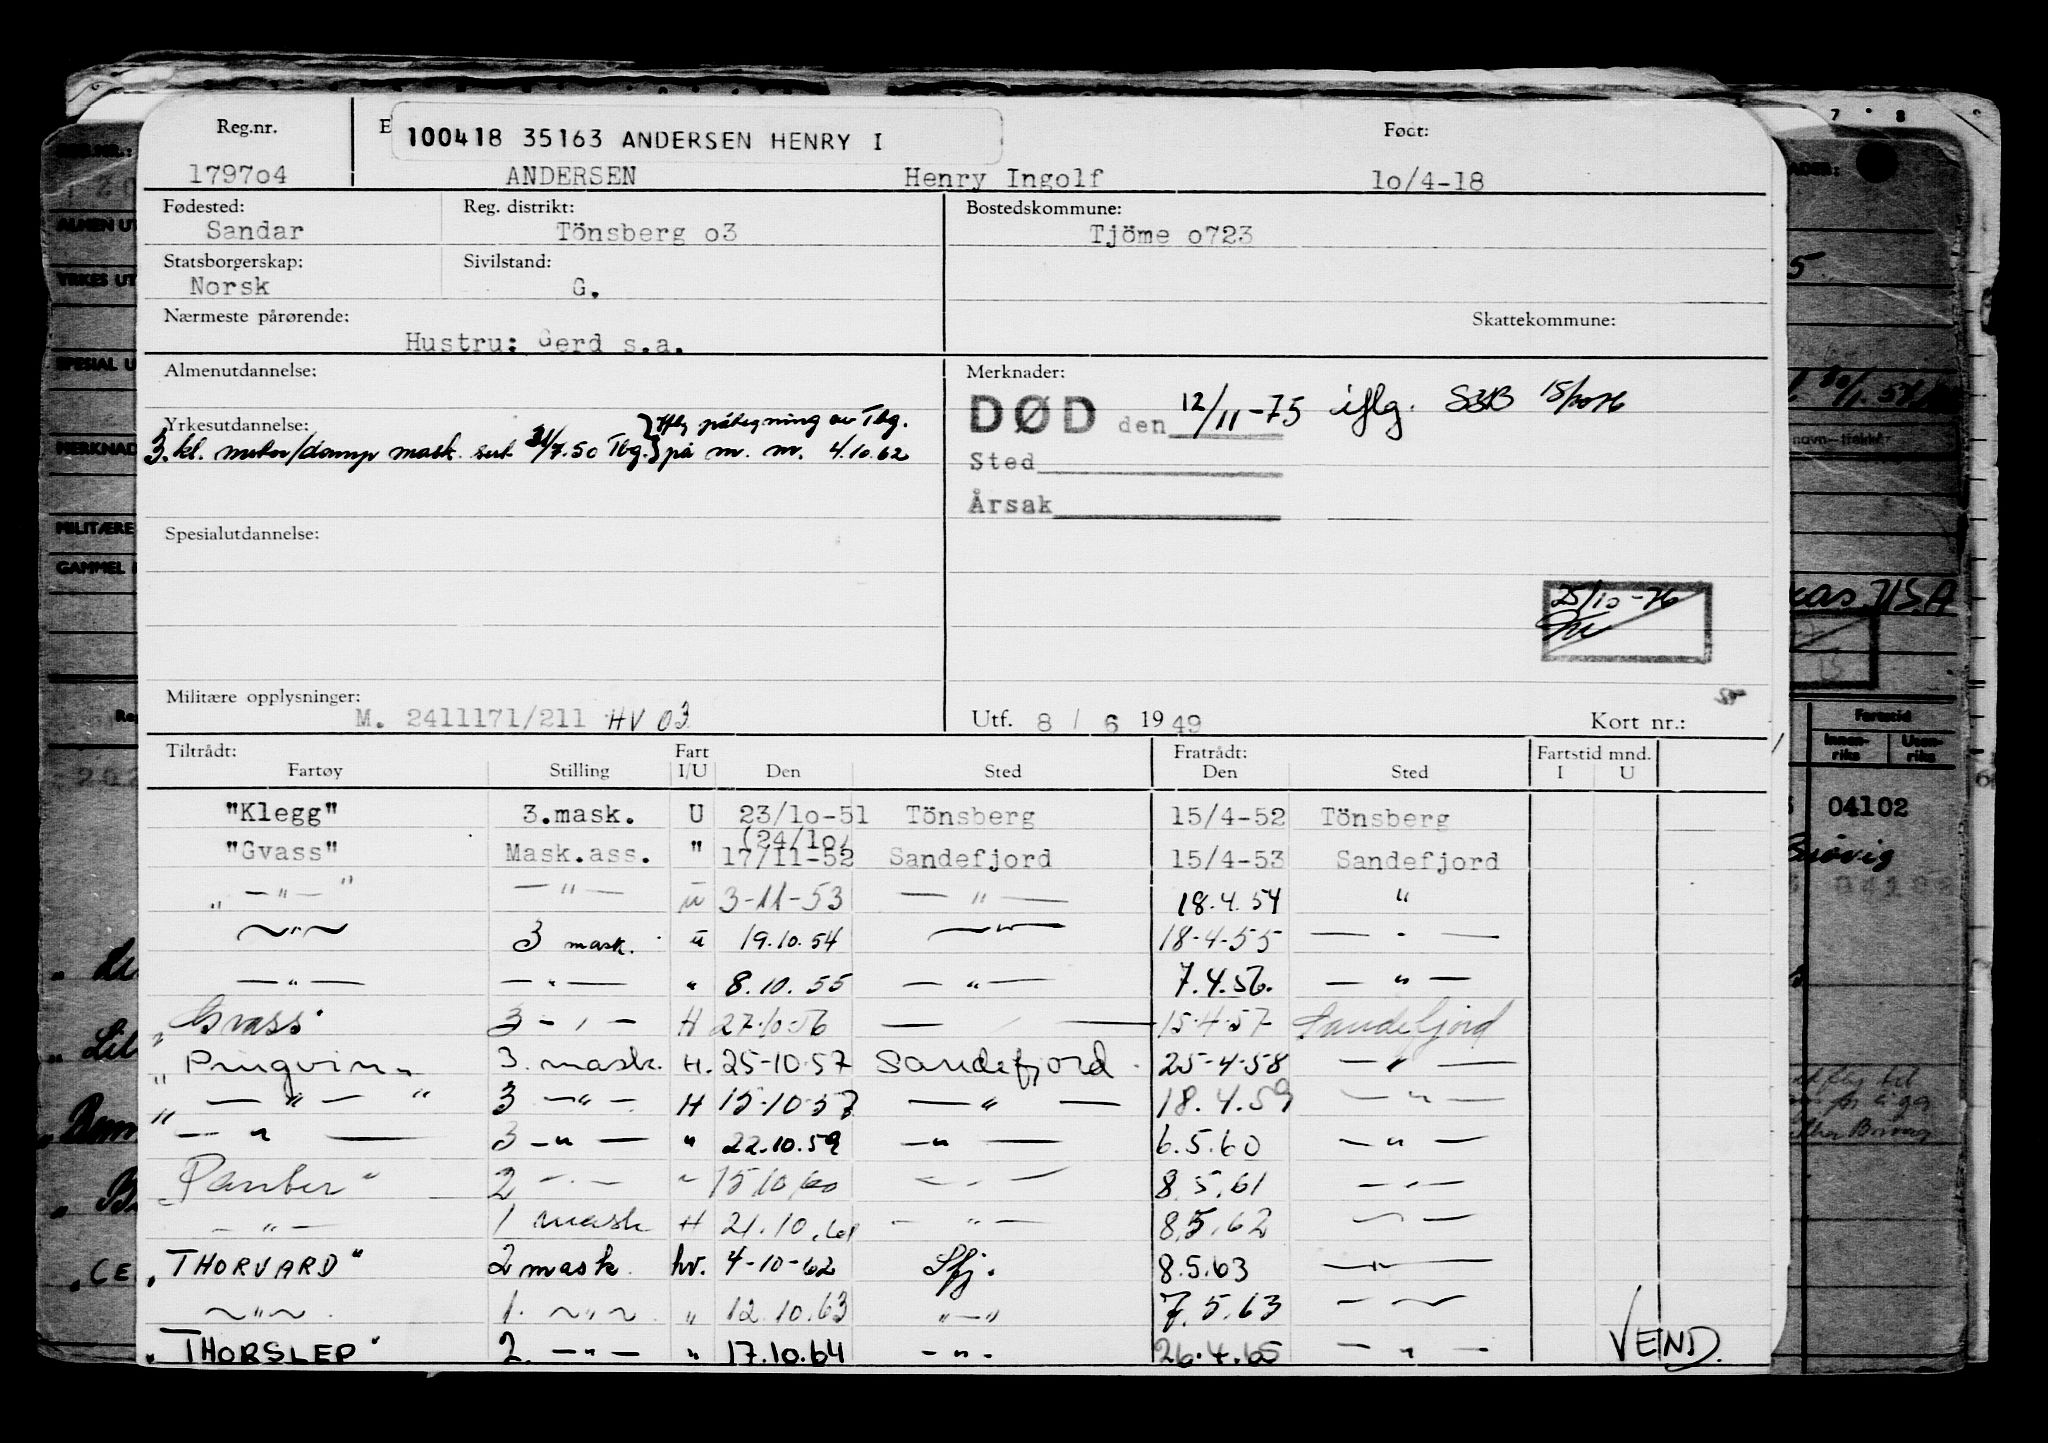 Reg.nr.
100418 35163 ANDERSEN HENRY I
Født:
1797o4 ANDERSEN Henry Ingolf 1o/4-18
Fødested: Reg. distrikt: Bostedskommune:
Sandar Tönsberg o3 Tjöme o723
Statsborgerskap: Sivilstand:
Norsk G.
Nærmeste pårørende: Skattekommune:
Hustru: Gerd s.a.
Almenutdannelse: Merknader:
DØD den 12/11-75 iflg.
Yrkesutdannelse:
påtegning av Tbg.
3. kl. motor/damp mask. sert. 31/7.50 Tbg. på m. nr. 4.10.62
Sted
Årsak
Spesialutdannelse:
25/10-76
Militære opplysninger:
M. 2411171/211 HV 03 Utf. 8 / 6 1949 Kort nr.:
Tiltrådt: Fart Fratrådt: Fartstid mnd.
Fartøy Stilling I/U Den Sted Den Sted I U
"Klegg" 3.mask. U 23/1o-51 Tönsberg 15/4-52 Tönsberg
(24/1o)
"Gvass" Mask.ass. " 17/11-52 Sandefjord 15/4-53 Sandefjord
" — " — " — " — u 3-11-53 — " — 18.4.54 "
— " — 3 mask. u 19.10.54 — " — 18-4-55 — " —
— " — — " — " 8.10.55 — " — 7.4.56. — " —
"Gvass" 3 — " — H 27.10.56 — " — 15.4.57 Sandefjord
"Pingvin" 3. mask. H. 25-10-57 Sandefjord 25-4-58 — " —
" — " — " 3 — " — H 15-10-57 — " — 18.4.59 — " —
— " — 3 — " — " 22.10.59 — " — 6.5.60 — " —
"Panter" 2 — " — " 15.10.60 — " — 8.5.61 — " —
— " — 1 mask H 21.10.61 — " — 8.5.62 — " —
"THORVARD" 2 mask. hv. 4-10-62 Sfj. 8.5.63 — " —
— " — 1. — " — " 12.10.63 — " — 7.5.63 — " —
"THORSLEP" 2. — " — " 17.10.64 — " — 26.4.65 — " —
VEND.
YRKES UT
SPESIAL U
MERKNAD
MILITÆRE
GAMMEL
USA
Fartstid
Innen-riks
Uten-riks
04102